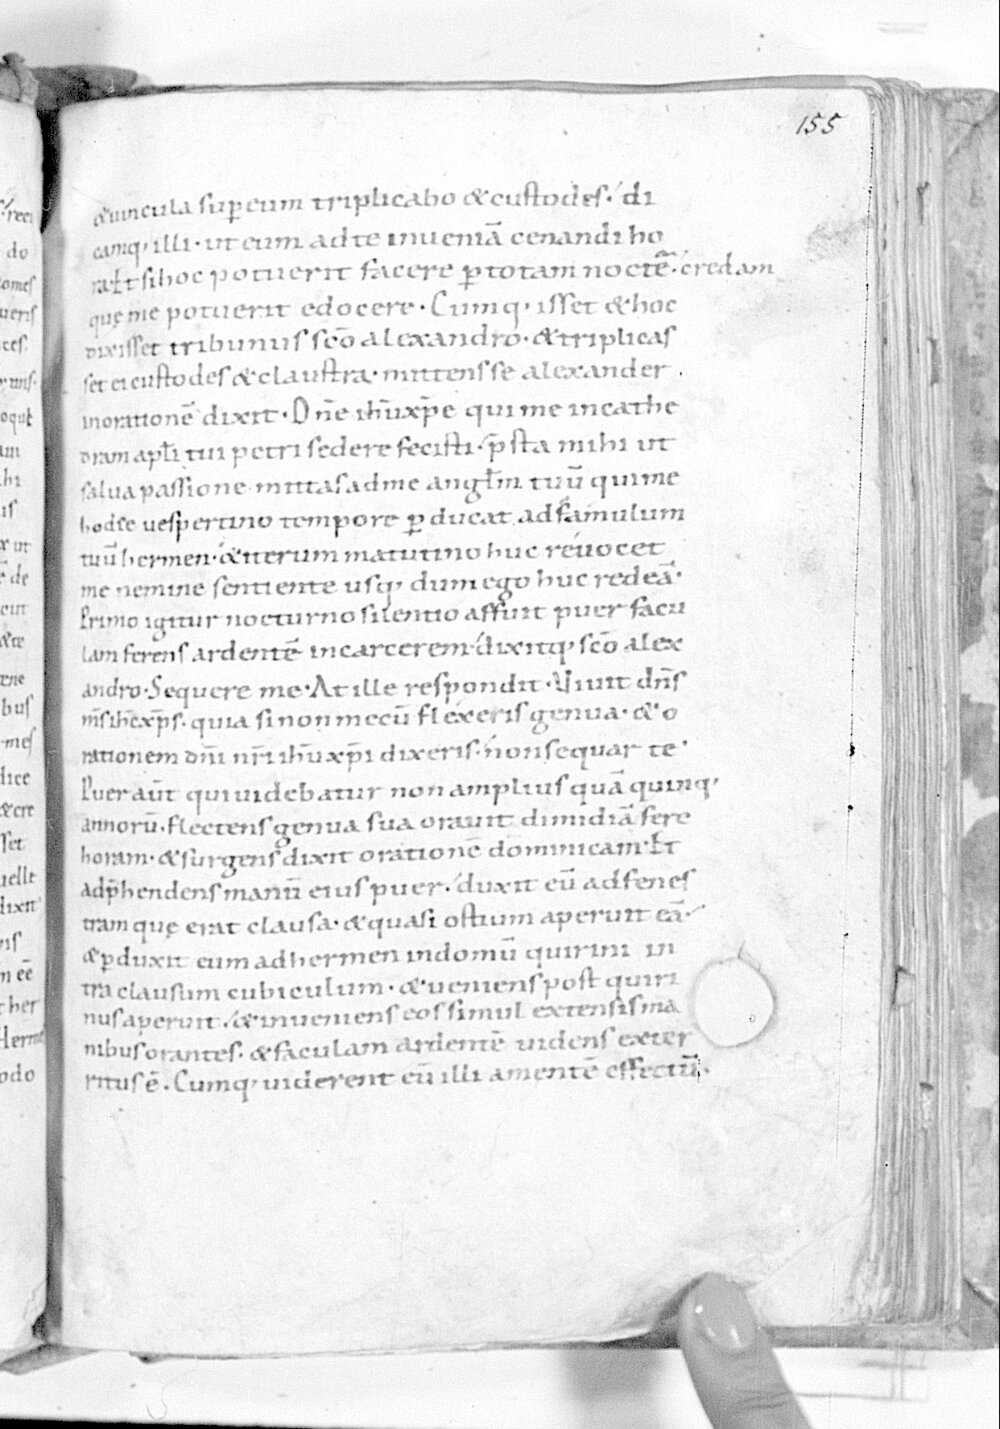 155
&uincula sup̱eum triplicabo &custodes· di
camq; illi· ut eum adte inueniā cenandi ho
ra· Et sihoc potuerit facere p̱totam noctē· credam
quę me potuerit edocere· Cumq; isset &hoc
dixisset tribunus sc̄o alexandro· &triplicas
set ei custodes &claustra· mittens se alexander
inorationē dixit· Dn̄e ih̄u xp̄e qui me incathe
dram apl̄i tui petri sedere fecisti· p̄sta mihi ut
salua passione mittas adme angl̄m tuū qui me
hodie uespertino tempore p̱ducat ad famulum
tuū hermen· &iterum matutino huc reuocet
me nemine sentiente usq; dum ego huc redeā·
Primo igitur nocturno silentio affuit puer facu
lam ferens ardentē incarcerem· dixitq; sc̄o alex
andro· Sequere me· At ille respondit· Uiuit dn̄s
m̄s ih̄s xp̄s· quia sinon mecū flexeris genua· &o
rationem dn̄i nr̄i ih̄u xp̄i dixeris· non sequar te·
Puer aūt qui uidebatur non amplius quā quinq;
annorū· flectens genua sua orauit dimidiā fere
horam· &surgens dixit orationē dominicam· Et
adp̄hendens manū eius puer· duxit eū adfenes
tram quę erat clausa· &quasi ostium aperuit eā·
&p̱duxit eum adhermen indomū quirini in
tra clausum cubiculum· &ueniens post quiri
nus aperuit· &inueniens eos simul extensis ma
nibus orantes· &faculam ardentē uidens exter
ritus ē· Cumq; uiderent eū illi amentē effectū·
s· reci
do
omes
ueris
ces·
runs·
oquē
am
hi
is
x ut
ē de
&te
ene
bus
mes
dice
&cre
sset
uelle
dixit
ns
m eē
ther
Herme
odo